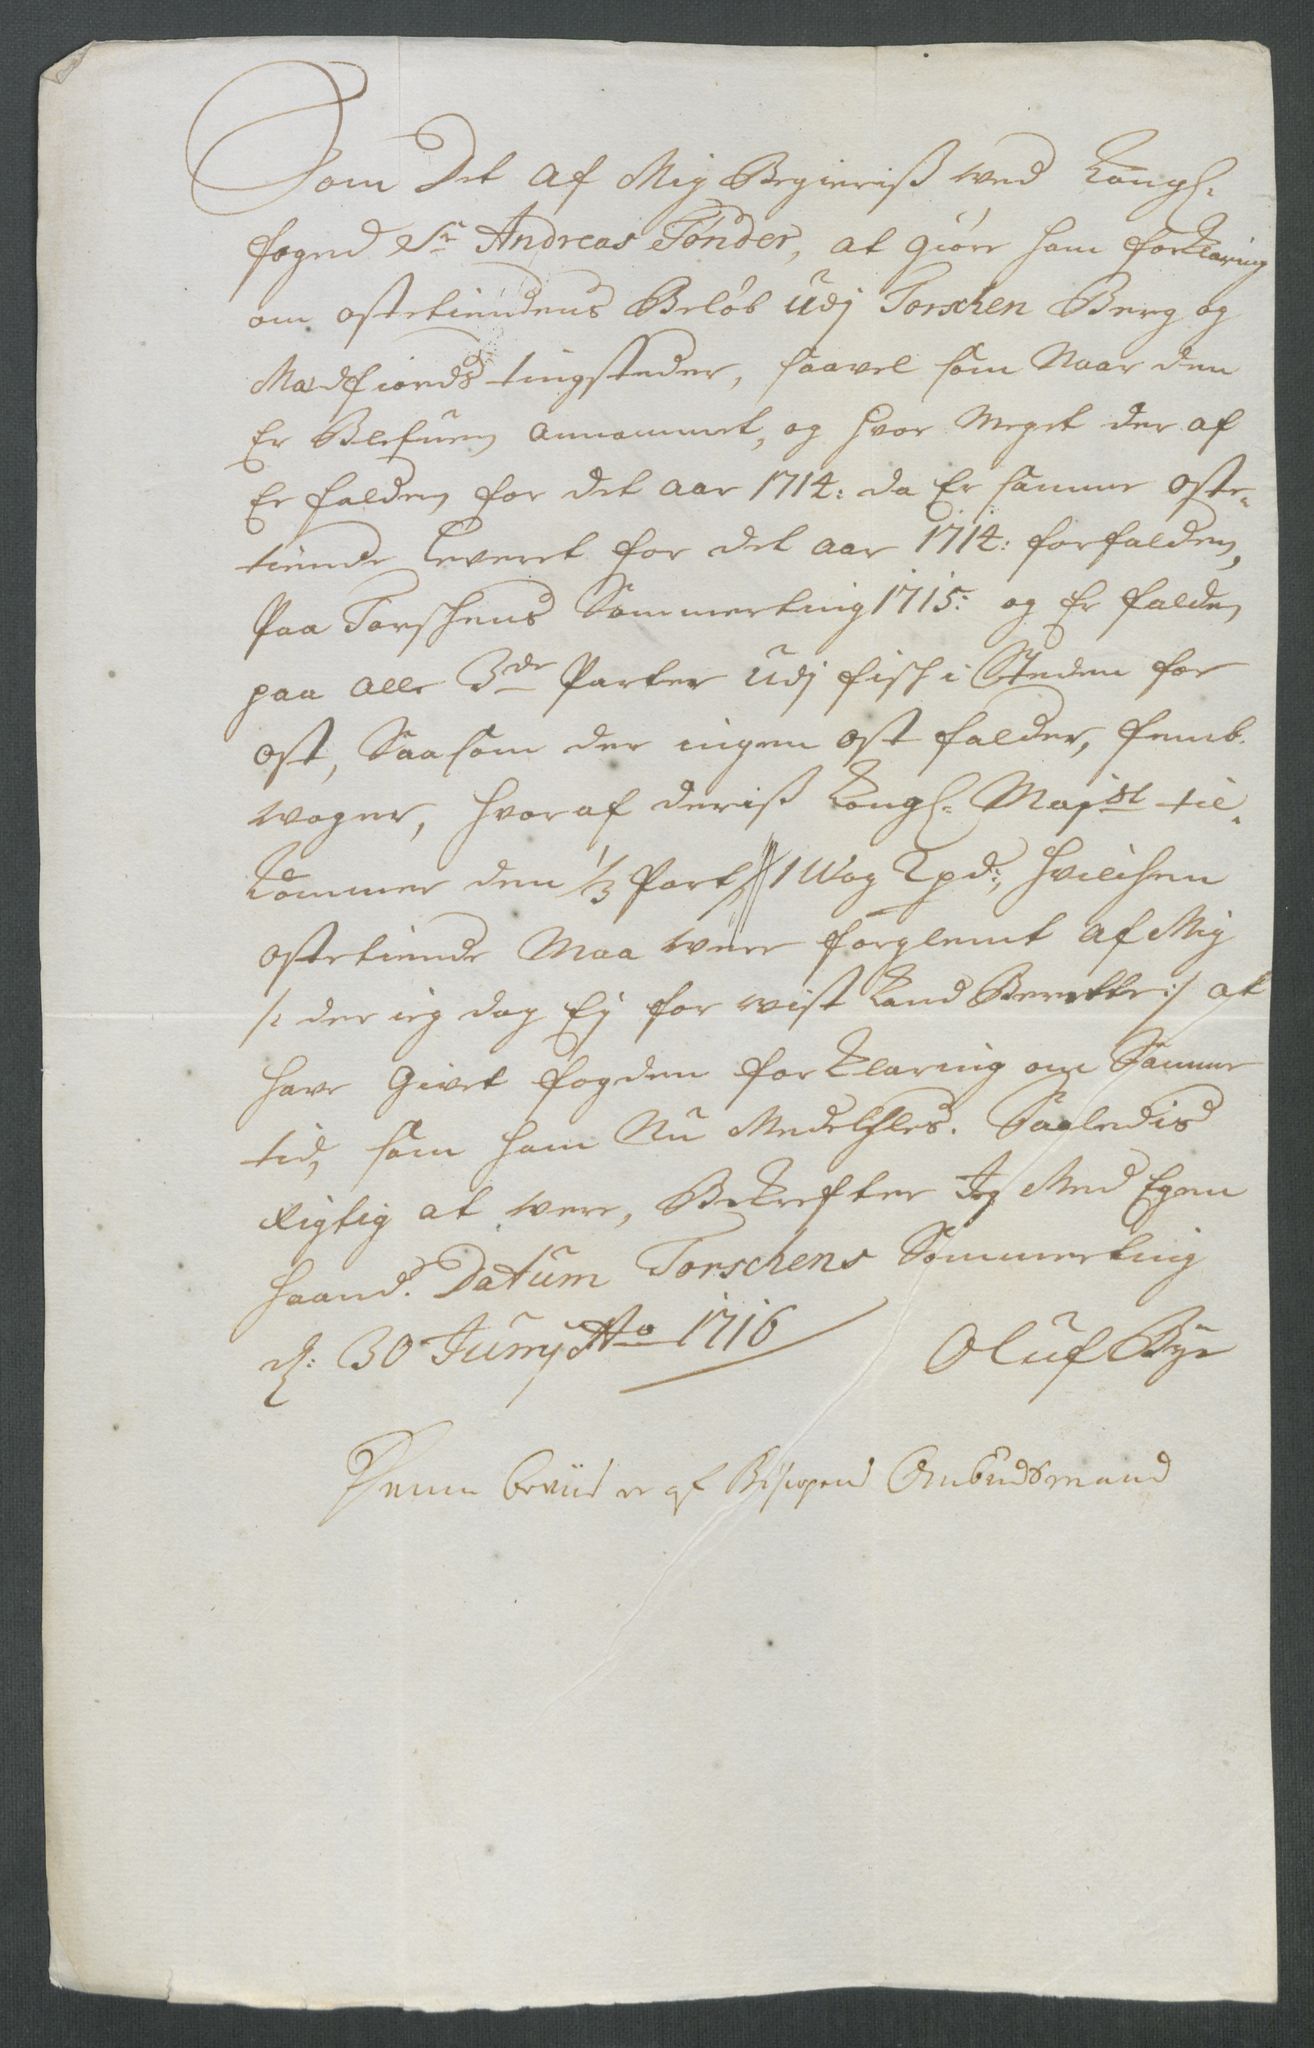 Som Det af Mig Begieriß ved Kongl:
foged Sr Andreas Tønder, at giøre ham forklaring
om ostetiendens Beløb Udj Torschen Berg og
Medfiords tingsteder, saavel som Naar den
Er Blefuen annammet, og hvor Meget der af
Er falden for det aar 1714: da Er samme oste-
tiende leveret for det aar 1714: forfalden,
Paa Torschens Sommerting 1715: og Er falden
paa alle 3de Parter Udj fisch i Steden for
ost, Saasom der ingen ost falder, femb
voger, hvoraf deriß Kongl: Majst til-
kommer den 1/3 Part // 1 Wog 2 pd:, hvilchen
ostetiende Maa være forglemt af Mig
/: der ieg dog Ej for vist kand Berette :/ at
have Givet fogden forklaring om Samme
tid, som ham Nu Meddeelles. Saaledis
Rigtig at være, Bekrefter Jeg Med Egen
haand. Datum Torschens Sommerting
d: 30 Junij Ao 1716
Oluf Bye
Denne beviis er af Bispens Ombudsmand